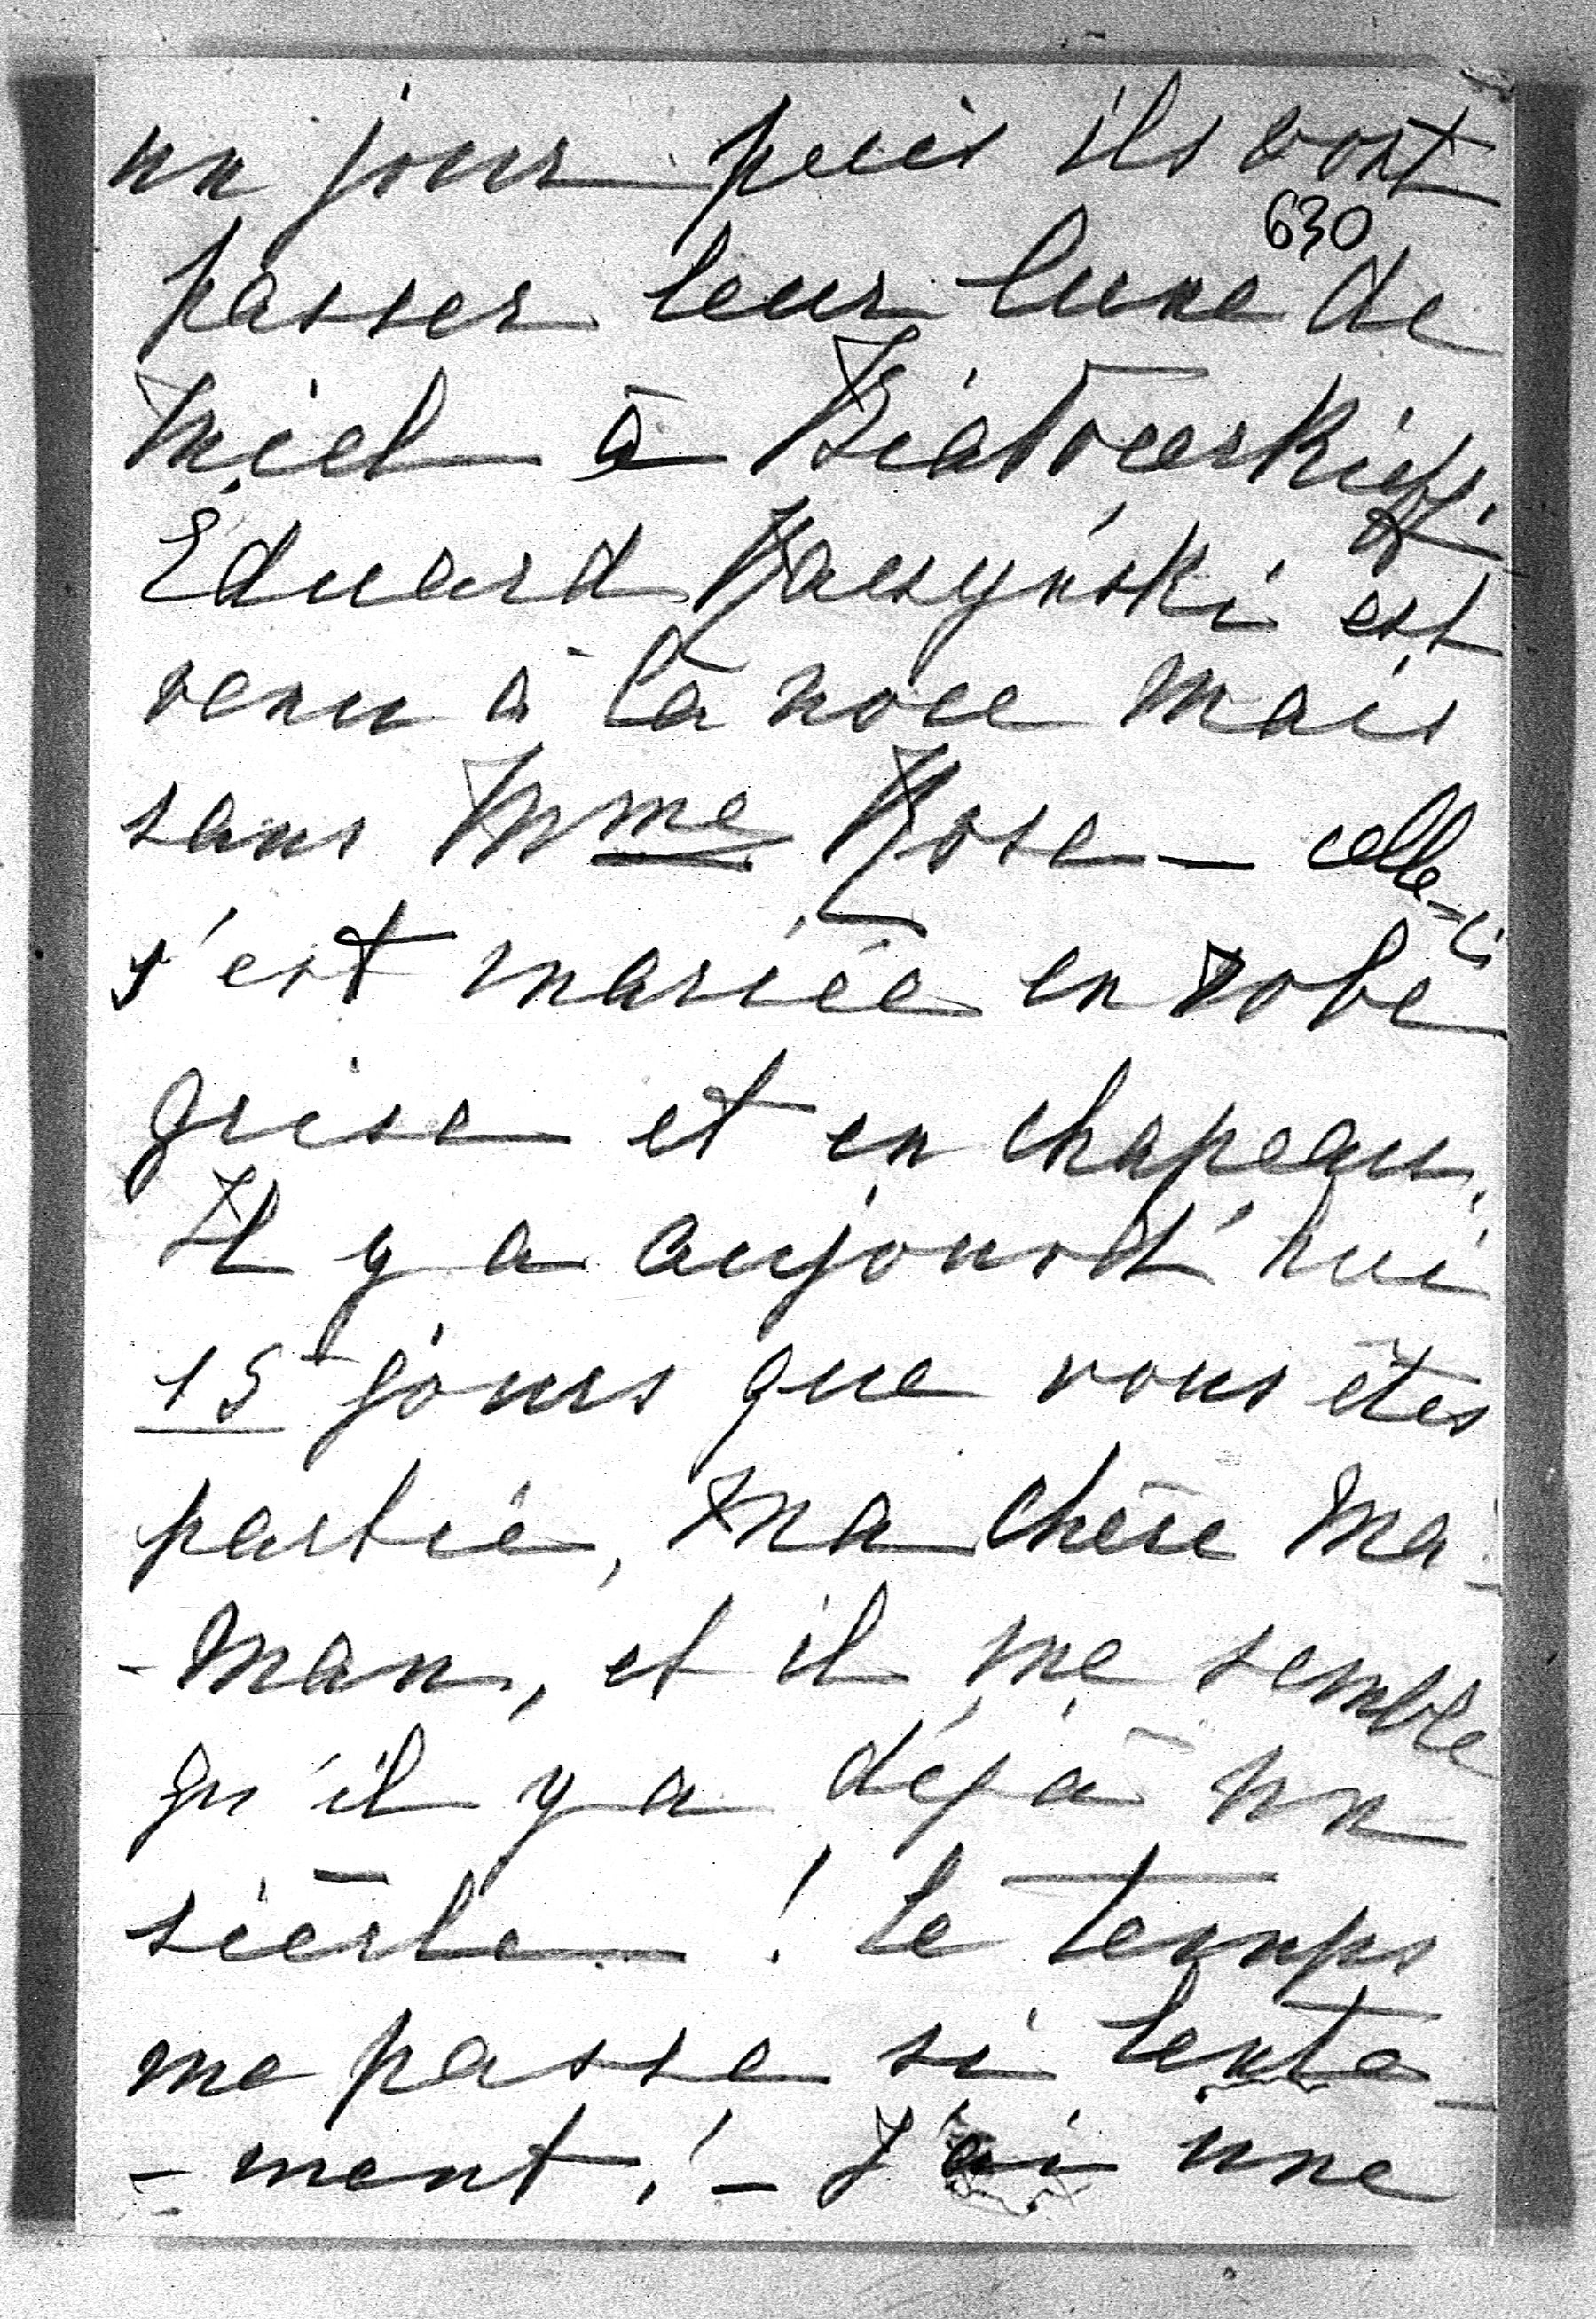 un jour puis ils vont
630
passer leur lune de
Miel à
Eduard Raczyński est
venu à la noce mais
sans Mme Rose — celle-ci
s'est mariée en robe
grise et en chapeau.
Il y a aujourd'hui
15 jours que vous êtes
partie, ma chère Ma-
-man, et il me semble
qu'il y a déjà un
sièrle ! Le temps
me passe si lente-
-ment ! — J'ai une